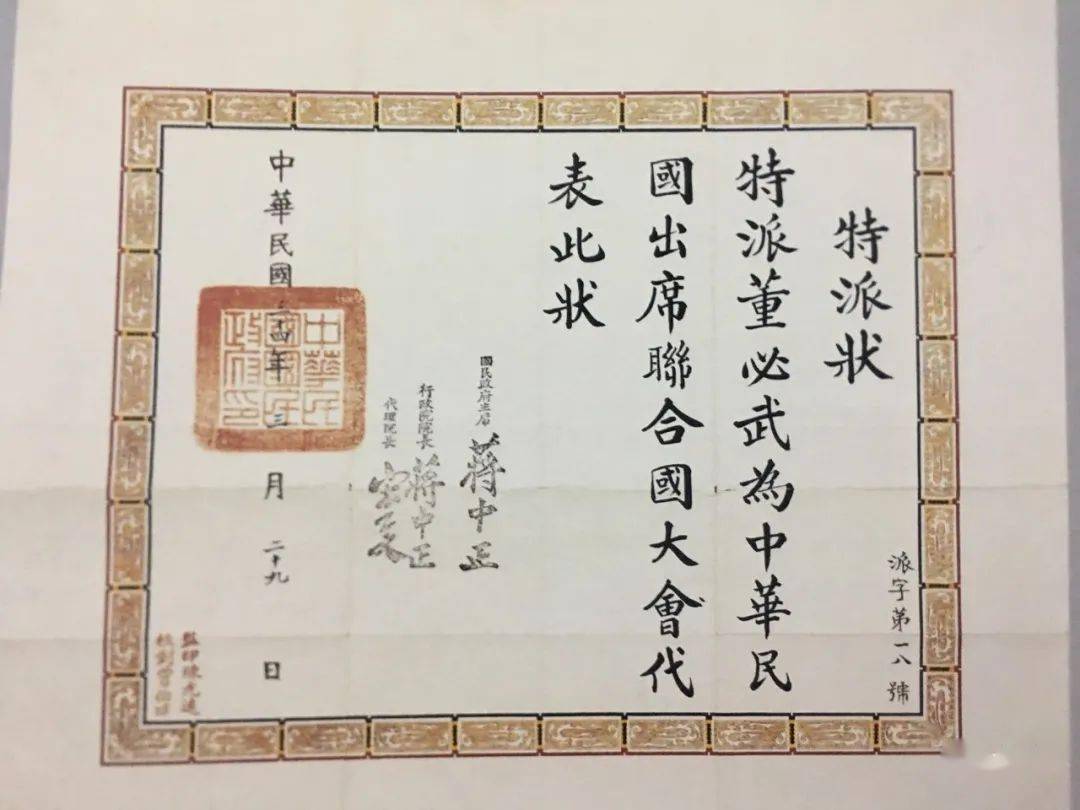 特派狀
特派董必武為中華民
國出席聯合國大會代
表此狀
國民政府主席 蔣中正
行政院院長 蔣中正
代理院長 宋子文
中華民國三十四年三月二十九日
中華民國國民政府印
派字第一八號
監印陳光遠